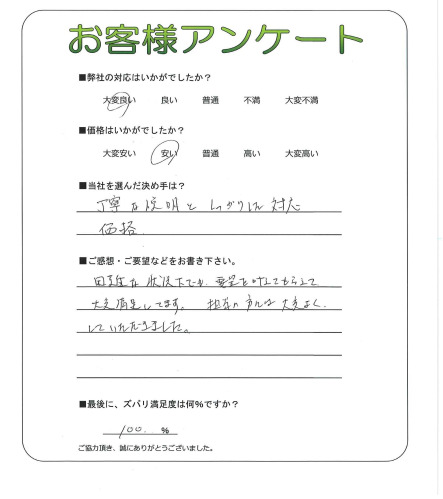 お客様アンケート
■弊社の対応はいかがでしたか？
大変良い 良い 普通 不満 大変不満
■価格はいかがでしたか？
大変安い 安い 普通 高い 大変高い
■当社を選んだ決め手は？
丁寧な説明としっかりした対応
価格
■ご感想・ご要望などをお書き下さい。
困難な状況下でも、要望を叶えてもらえて
大変満足してます。担当の方には大変よく
していただきました。
■最後に、ズバリ満足度は何%ですか？
100. %
ご協力頂き、誠にありがとうございました。